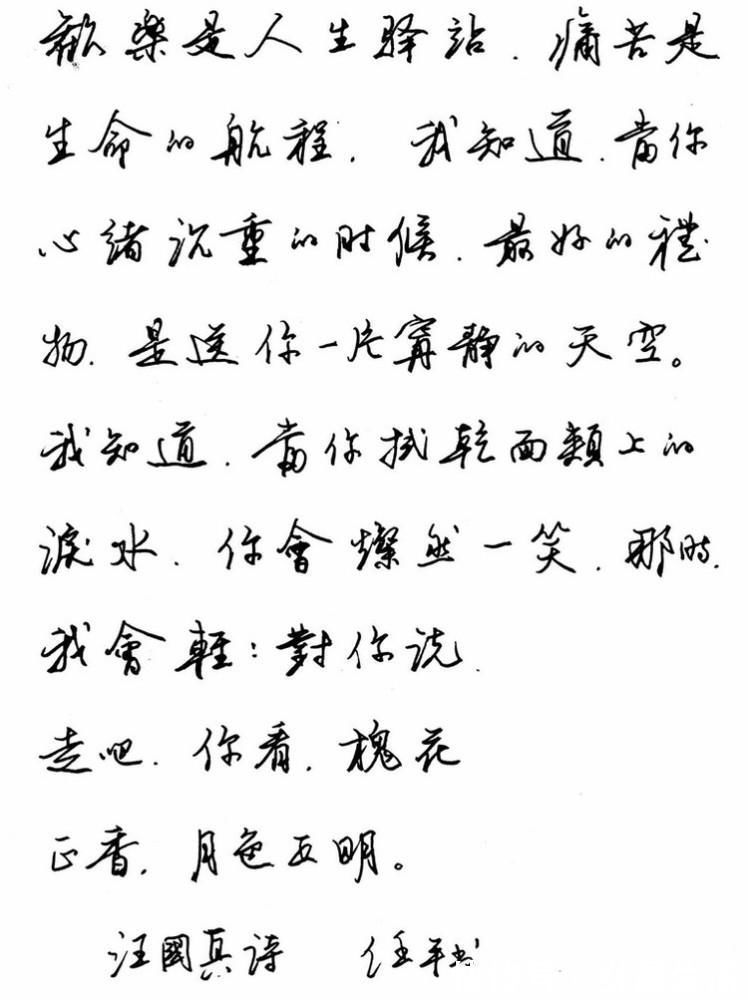 歡樂是人生驿站，痛苦是
生命的航程，我知道，當你
心緒沉重的时候，最好的禮
物，是送你一片寧靜的天空。
我知道，當你拭乾面頰上的
淚水，你會燦然一笑，那时，
我會輕：對你说，
走吧，你看，槐花
正香，月色正明。
汪國真詩 任平书